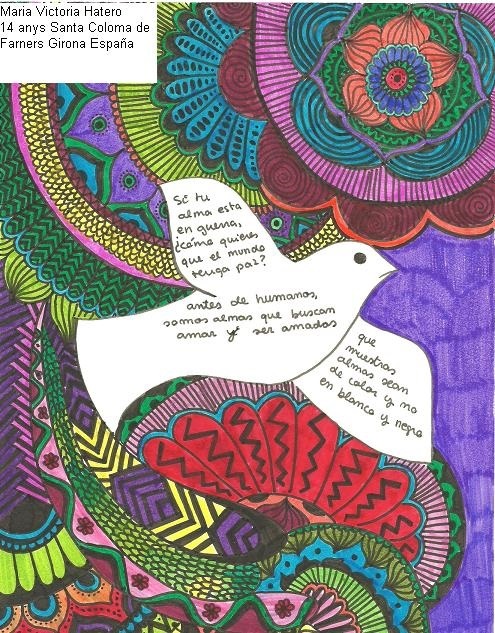 Maria Victoria Hatero
14 anys Santa Coloma de
Farners Girona España
Si tu
alma esta
en guerra,
¿cómo quieres
que el mundo
tenga paz?
antes de humanos,
somos almas que buscan
amar y ser amados
que
nuestras
almas sean
de color y no
en blanco y negro